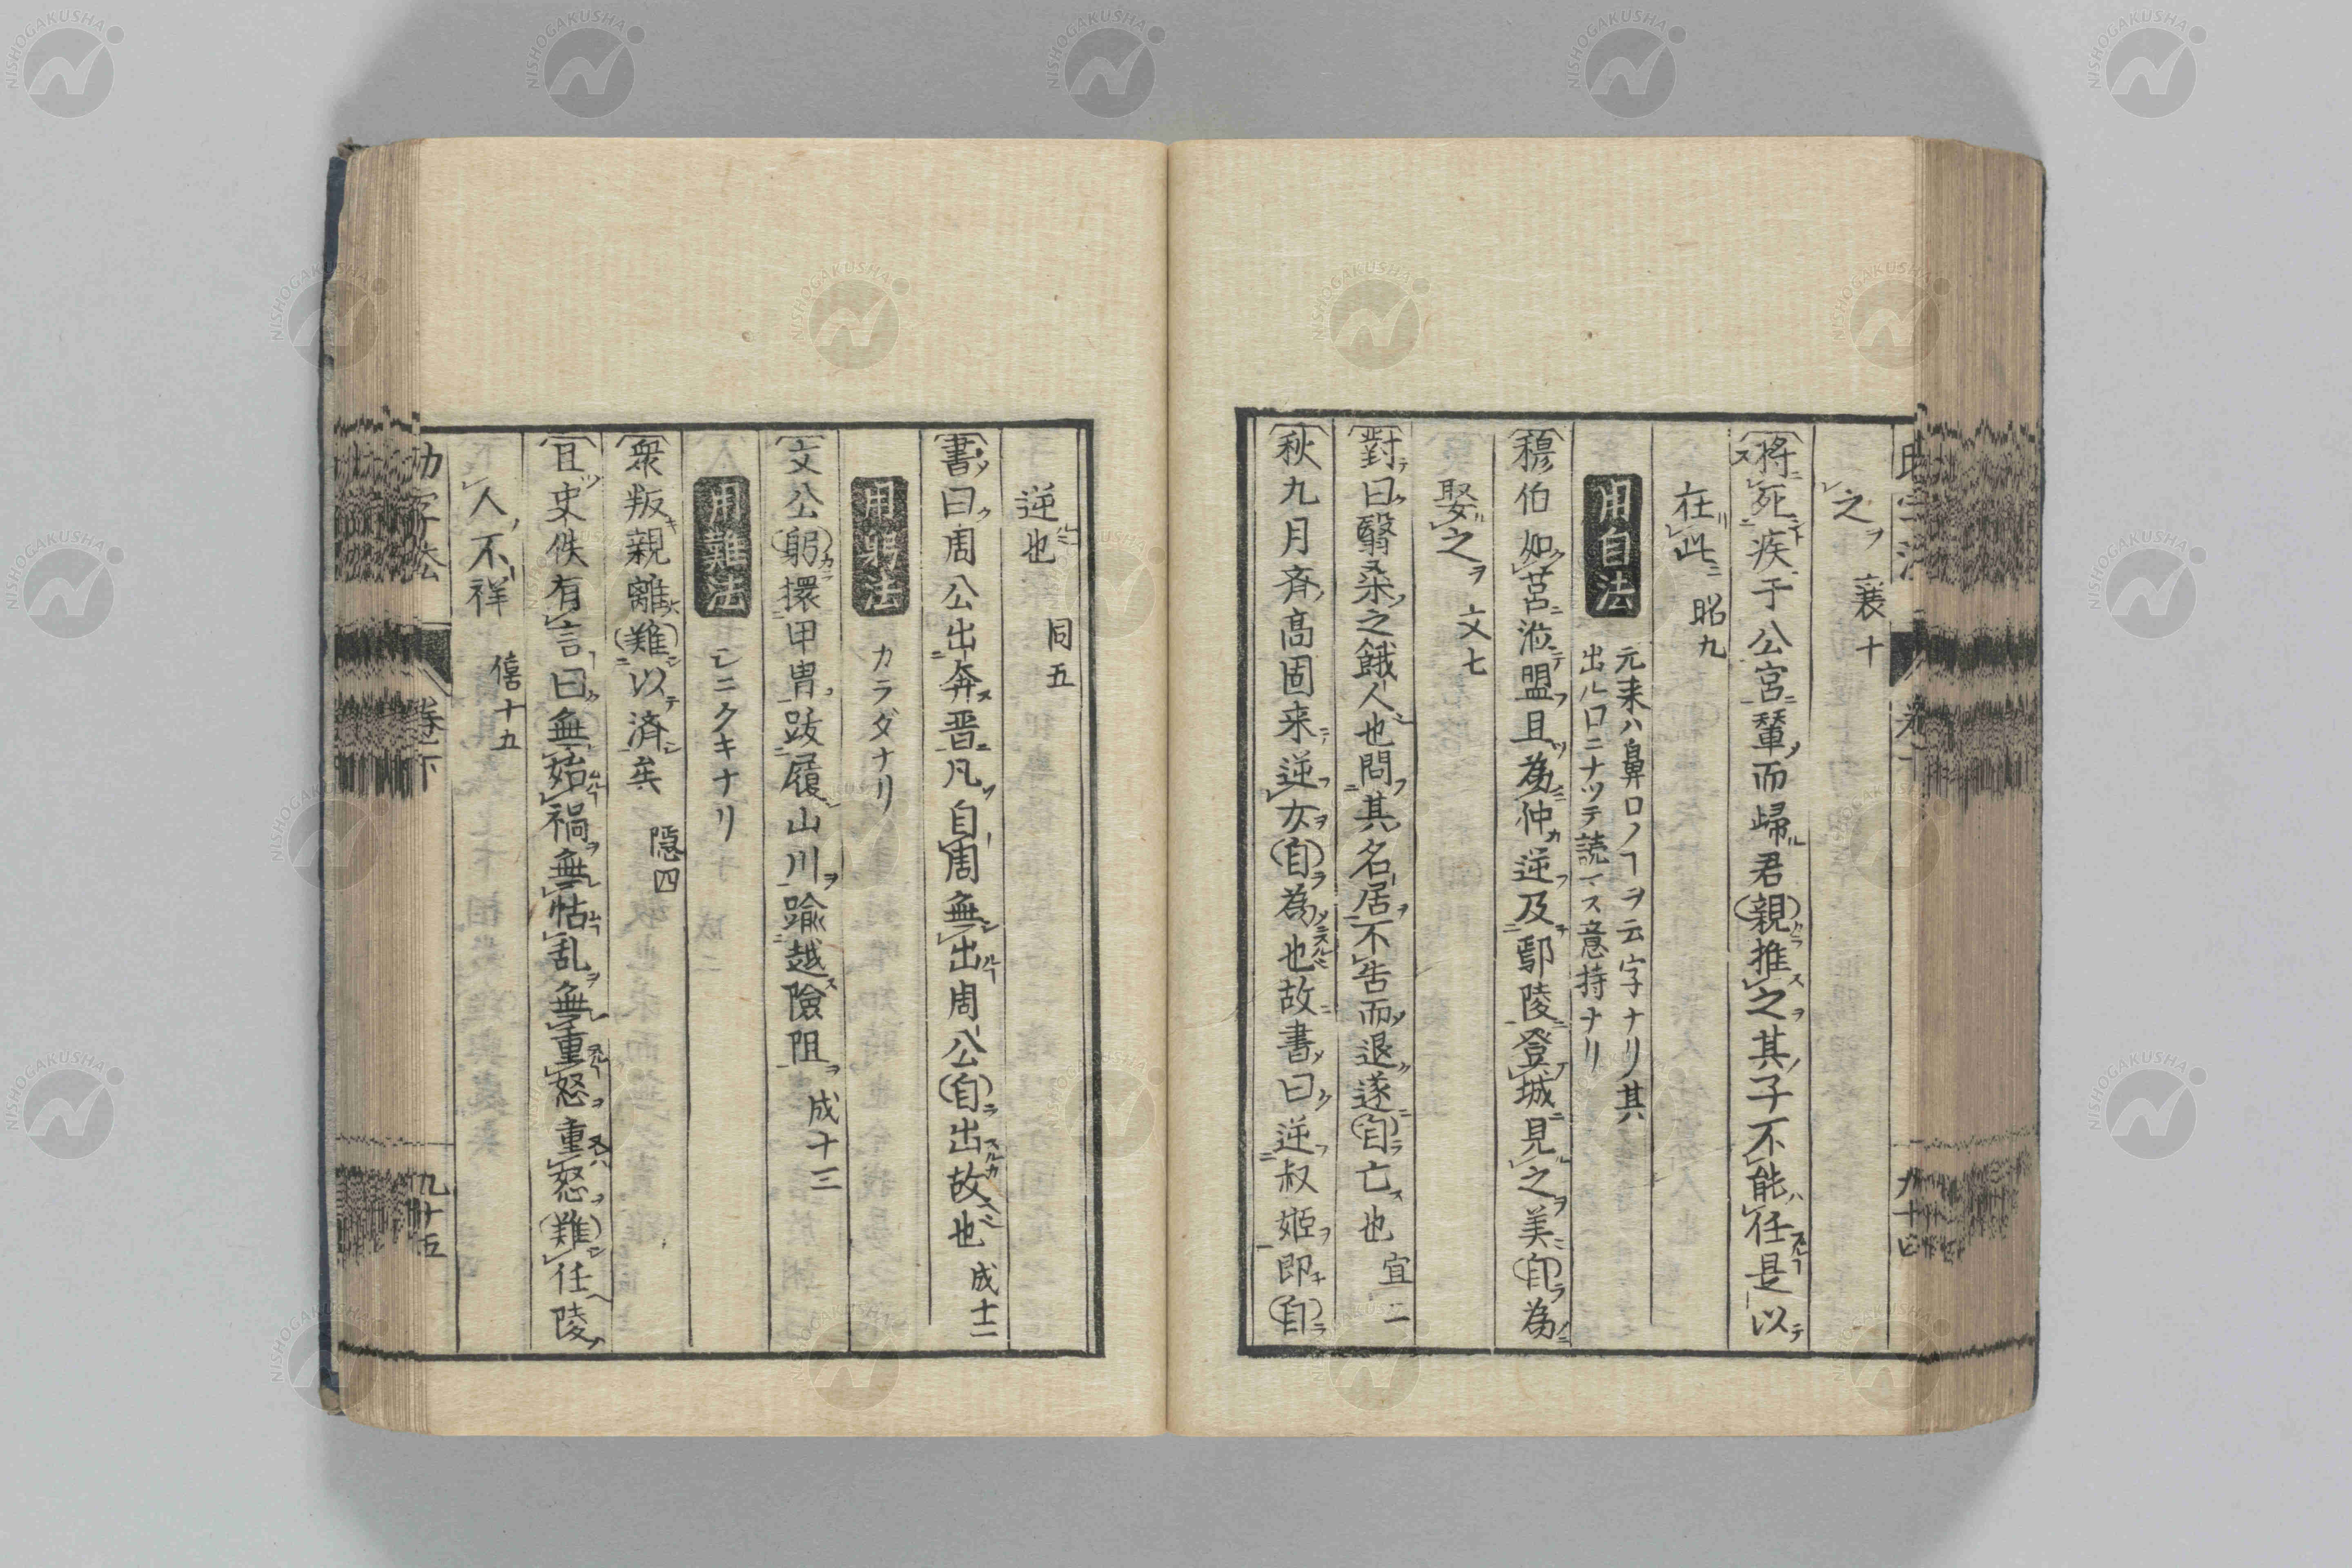 之ヲ 襄十
将死疾于公宮輦而歸君親推之其子不能任是以
在此 昭九
用自法 元来ハ鼻口ノヿヲ云字ナリ其
出ル口ニナツテ読マス意持ナリ
穆伯如莒涖盟且為仲逆及鄢陵登城見之美自為
娶之ヲ 文七
對曰翳桑之餓人也問其名居不告而退遂自亡也 宣二
秋九月斉高固来逆女自為也故書曰逆叔姫即自
逆也 同五
書曰周公出奔晋凡自周無出周公自出故也 成十二
用躬法 カラダナリ
文公躬擐甲冑跋履山川踰越險阻 成十三
用難法 シニクキナリ
衆叛親離難以済矣 隠四
且史佚有言曰無始禍無怙乱無重怒重怒難任陵
人不祥 僖十五
巻下
九十五
NISHOGAKUSHA